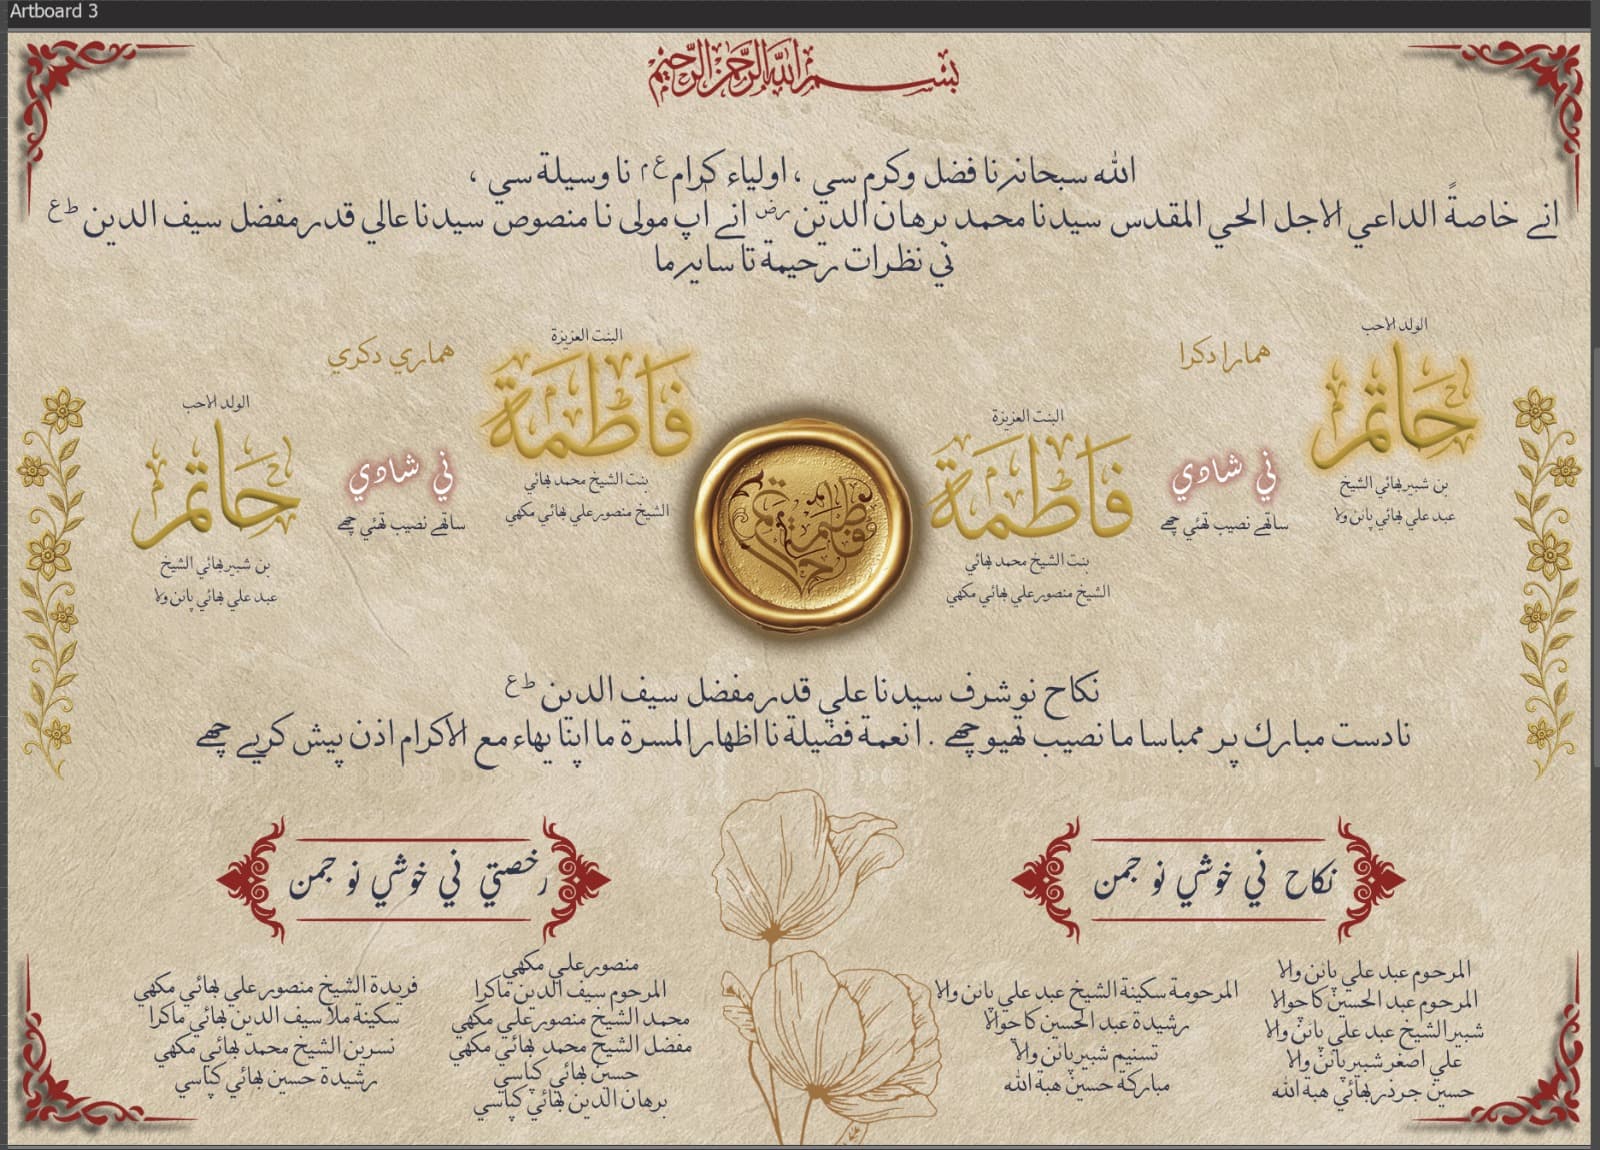 Artboard 3
بسم الله الرحمن الرحيم
الله سبحانہ نا فضل وكرم سي ، اولياء كرام ع م نا وسيلة سي ،
انے خاصةً الداعي الاجل الحي المقدس سيدنا محمد برهان الدين رض انے اپ مولى نا منصوص سيدنا عالي قدر مفضل سيف الدين ط ع
ني نظرات رحيمة تا سايہ ما
الولد الاحب
همارا دكرا
حاتم
ني شادي
بن شبير بھائي الشيخ
عبد علي بھائي پانن والا
ساتھے نصيب تھئي چھے
البنت العزيزة
فاطمة
بنت الشيخ محمد بھائي
الشيخ منصور علي بھائي مكهي
البنت العزيزة
هماري دكري
فاطمة
ني شادي
بنت الشيخ محمد بھائي
الشيخ منصور علي بھائي مكهي
ساتھے نصيب تھئي چھے
الولد الاحب
حاتم
بن شبير بھائي الشيخ
عبد علي بھائي پانن والا
فاطمة حاتم
نكاح نو شرف سيدنا علي قدر مفضل سيف الدين ط ع
نا دست مبارك پر ممباسا ما نصيب تھيو چھے . ا نعمة فضيلة نا اظهار المسرة ما اپنا يهاء مع الاكرام اذن پيش كريے چھے
نكاح ني خوشي نو جمن
المرحوم عبد علي پانن والا
المرحوم عبد الحسين كاچوالا
شبير الشيخ عبد علي پانن والا
علي اصغر شبير پانن والا
حسين جرذر بھائي هبة الله
المرحومة سكينة الشيخ عبد علي پانن والا
رشيدة عبد الحسين كاچوالا
تسنيم شبير پانن والا
مباركة حسين هبة الله
رخصتي ني خوشي نو جمن
منصور علي مكهي
المرحوم سيف الدين ماكرا
محمد الشيخ منصور علي مكهي
مفضل الشيخ محمد بھائي مكهي
حسين بھائي كپاسي
برهان الدين بھائي كپاسي
فريدة الشيخ منصور علي بھائي مكهي
سكينة ملا سيف الدين بھائي ماكرا
نسرين الشيخ محمد بھائي مكهي
رشيدة حسين بھائي كپاسي